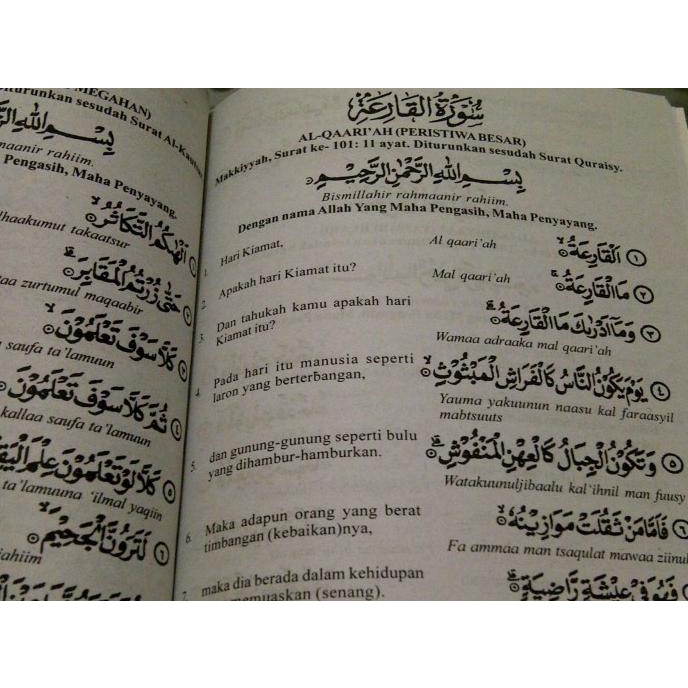 MEGAHAN)
Diturunkan sesudah Surat Al-Kautsar
بِسْمِ اللهِ
maanir rahiim.
Pengasih, Maha Penyayang.
اَلْهٰىكُمُ التَّكَاثُرُ
lhaakumut takaatsur
حَتّٰى زُرْتُمُ الْمَقَابِرَ
zurtumul maqaabir
كَلَّا سَوْفَ تَعْلَمُوْنَ
saufa ta'lamuun
ثُمَّ كَلَّا سَوْفَ تَعْلَمُوْنَ ٤
kallaa saufa ta'lamuun
كَلَّا لَوْ تَعْلَمُوْنَ عِلْمَ ٥
ta'lamuuna 'ilmal yaqiin
لَتَرَوُنَّ الْجَحِيْمَ ٦
ahiim
سُوْرَةُ الْقَارِعَةِ
AL-QAARI'AH (PERISTIWA BESAR)
Makkiyyah, Surat ke- 101: 11 ayat. Diturunkan sesudah Surat Quraisy.
بِسْمِ اللهِ الرَّحْمٰنِ الرَّحِيْمِ
Bismillahir rahmaanir rahiim.
Dengan nama Allah Yang Maha Pengasih, Maha Penyayang.
1. Hari Kiamat,
اَلْقَارِعَةُ ١
Al qaari'ah
2. Apakah hari Kiamat itu?
مَا الْقَارِعَةُ ٢
Mal qaari'ah
3. Dan tahukah kamu apakah hari
Kiamat itu?
وَمَآ اَدْرٰىكَ مَا الْقَارِعَةُ ٣
Wamaa adraaka mal qaari'ah
4. Pada hari itu manusia seperti
laron yang berterbangan,
يَوْمَ يَكُوْنُ النَّاسُ كَالْفَرَاشِ الْمَبْثُوْثِ ٤
Yauma yakuunun naasu kal faraasyil
mabtsuuts
5. dan gunung-gunung seperti bulu
yang dihambur-hamburkan.
وَتَكُوْنُ الْجِبَالُ كَالْعِهْنِ الْمَنْفُوْشِ ٥
Watakuunuljibaalu kal'ihnil man fuusy
6. Maka adapun orang yang berat
timbangan (kebaikan)nya,
فَاَمَّا مَنْ ثَقُلَتْ مَوَازِيْنُهٗ ٦
Fa ammaa man tsaqulat mawaa ziinuh
7. maka dia berada dalam kehidupan
memuaskan (senang).
فَهُوَ فِيْ عِيْشَةٍ رَّاضِيَةٍ